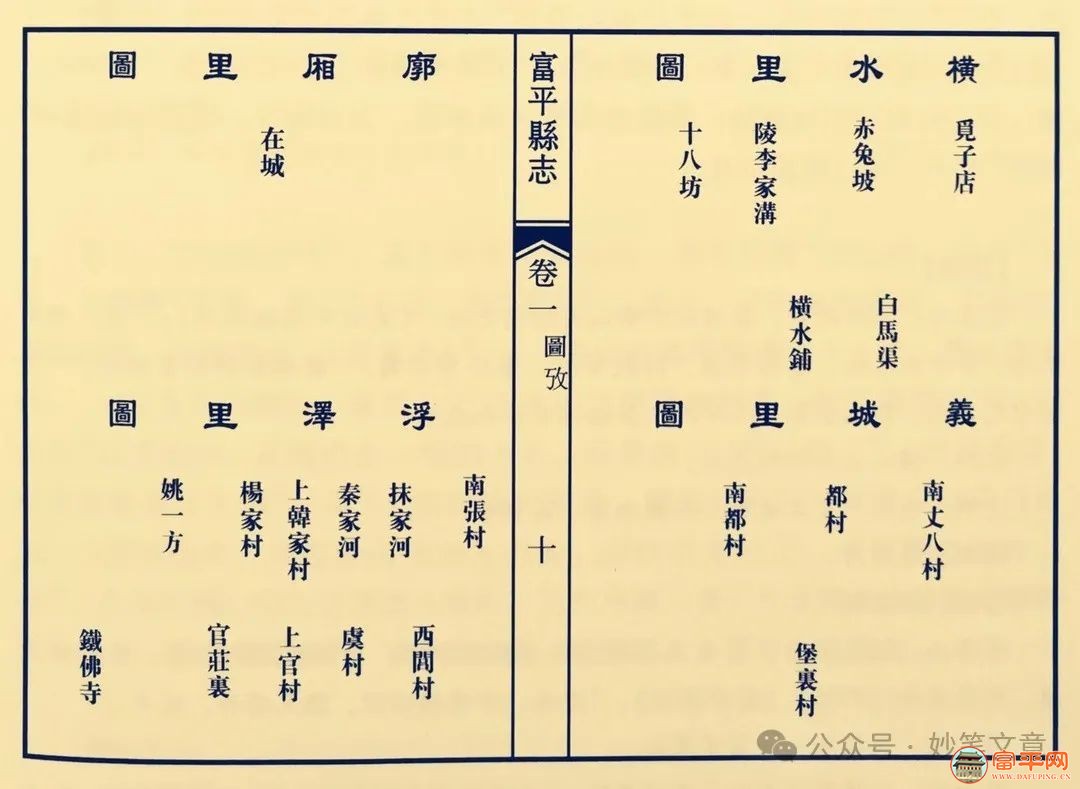 橫水里圖
覓子店
赤兔坡
白馬渠
陵李家溝
橫水鋪
十八坊
義城里圖
南丈八村
都村
堡裏村
南都村
富平縣志
卷一
圖攷
十
廓廂里圖
在城
浮澤里圖
南張村
西閭村
抹家河
秦家河
虞村
上韓家村
上官村
楊家村
官莊裏
姚一方
鐵佛寺
公众号·妙笔文章
富平网
WWW.DAFUPING.CN